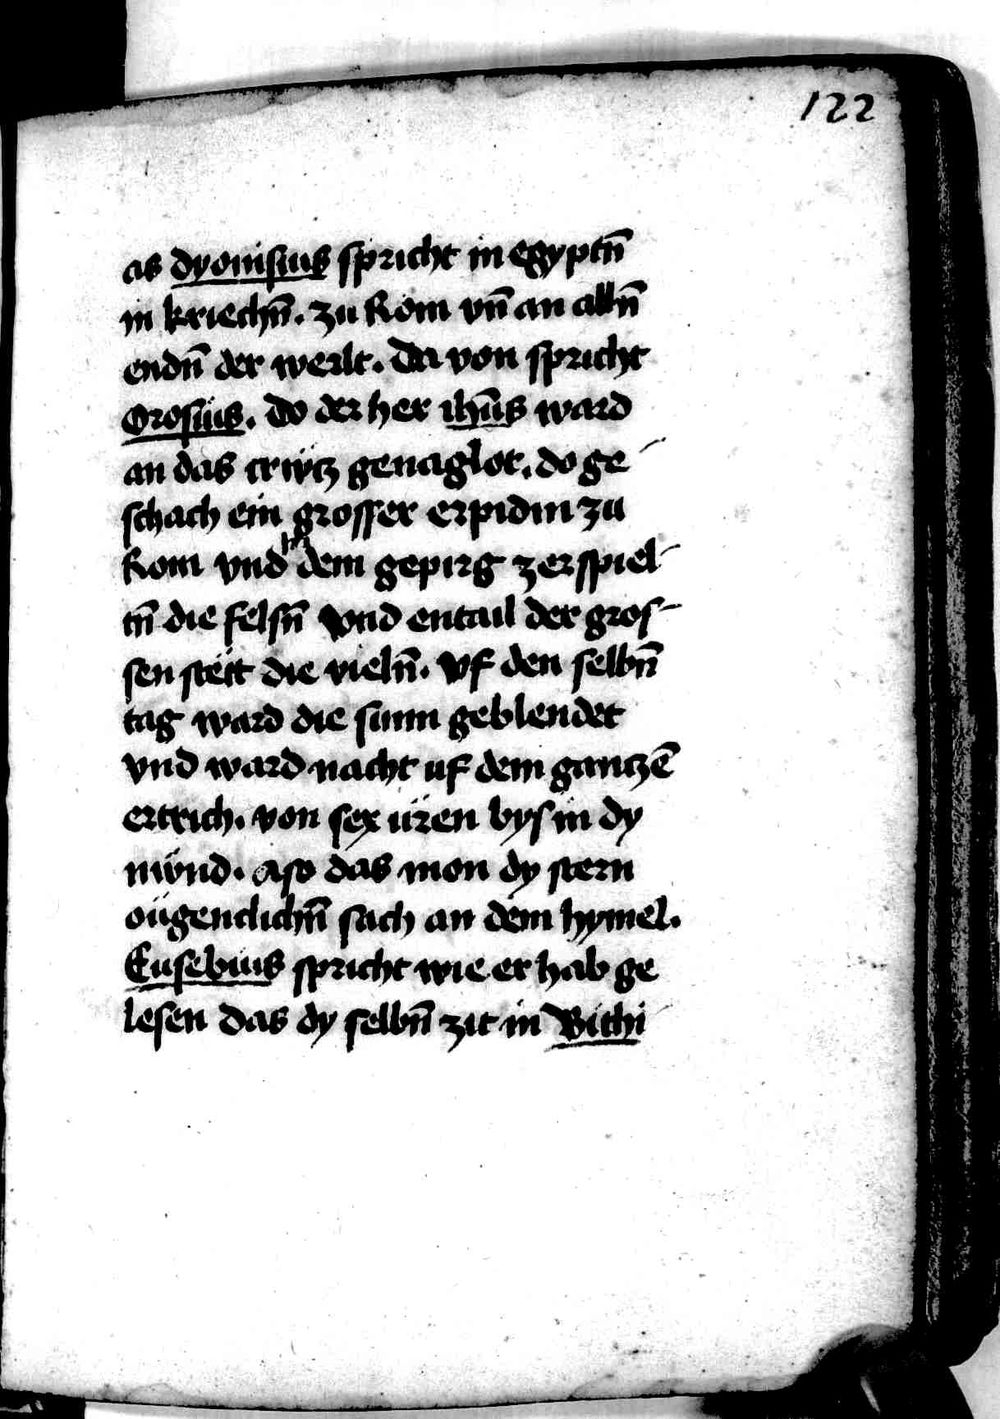 122
as dyonisius spricht in egyptn̄
in kriechn̄. zu Rom vn̄ an alln̄
endn̄ der werlt. Da von spricht
Orosius. do der her ihūs ward
an das crwtz genaglot. do ge
schach ein grosser erpidm zu
Rom vnd in dem gepirg zerspiel-
tn̄ die felsn̄ vnd entail der gros-
sen stett die vieln̄. Vf den selbn̄
tag ward die sunn geblendet
vnd ward nacht uf dem gantzē
ertrich. von sex üren bys in dy
nwnd. Aso das mon dy stern
oügenclichn̄ sach an dem hymel.
Eusebius spricht wie er hab ge
lesen das dy selbn̄ zit in Bithi